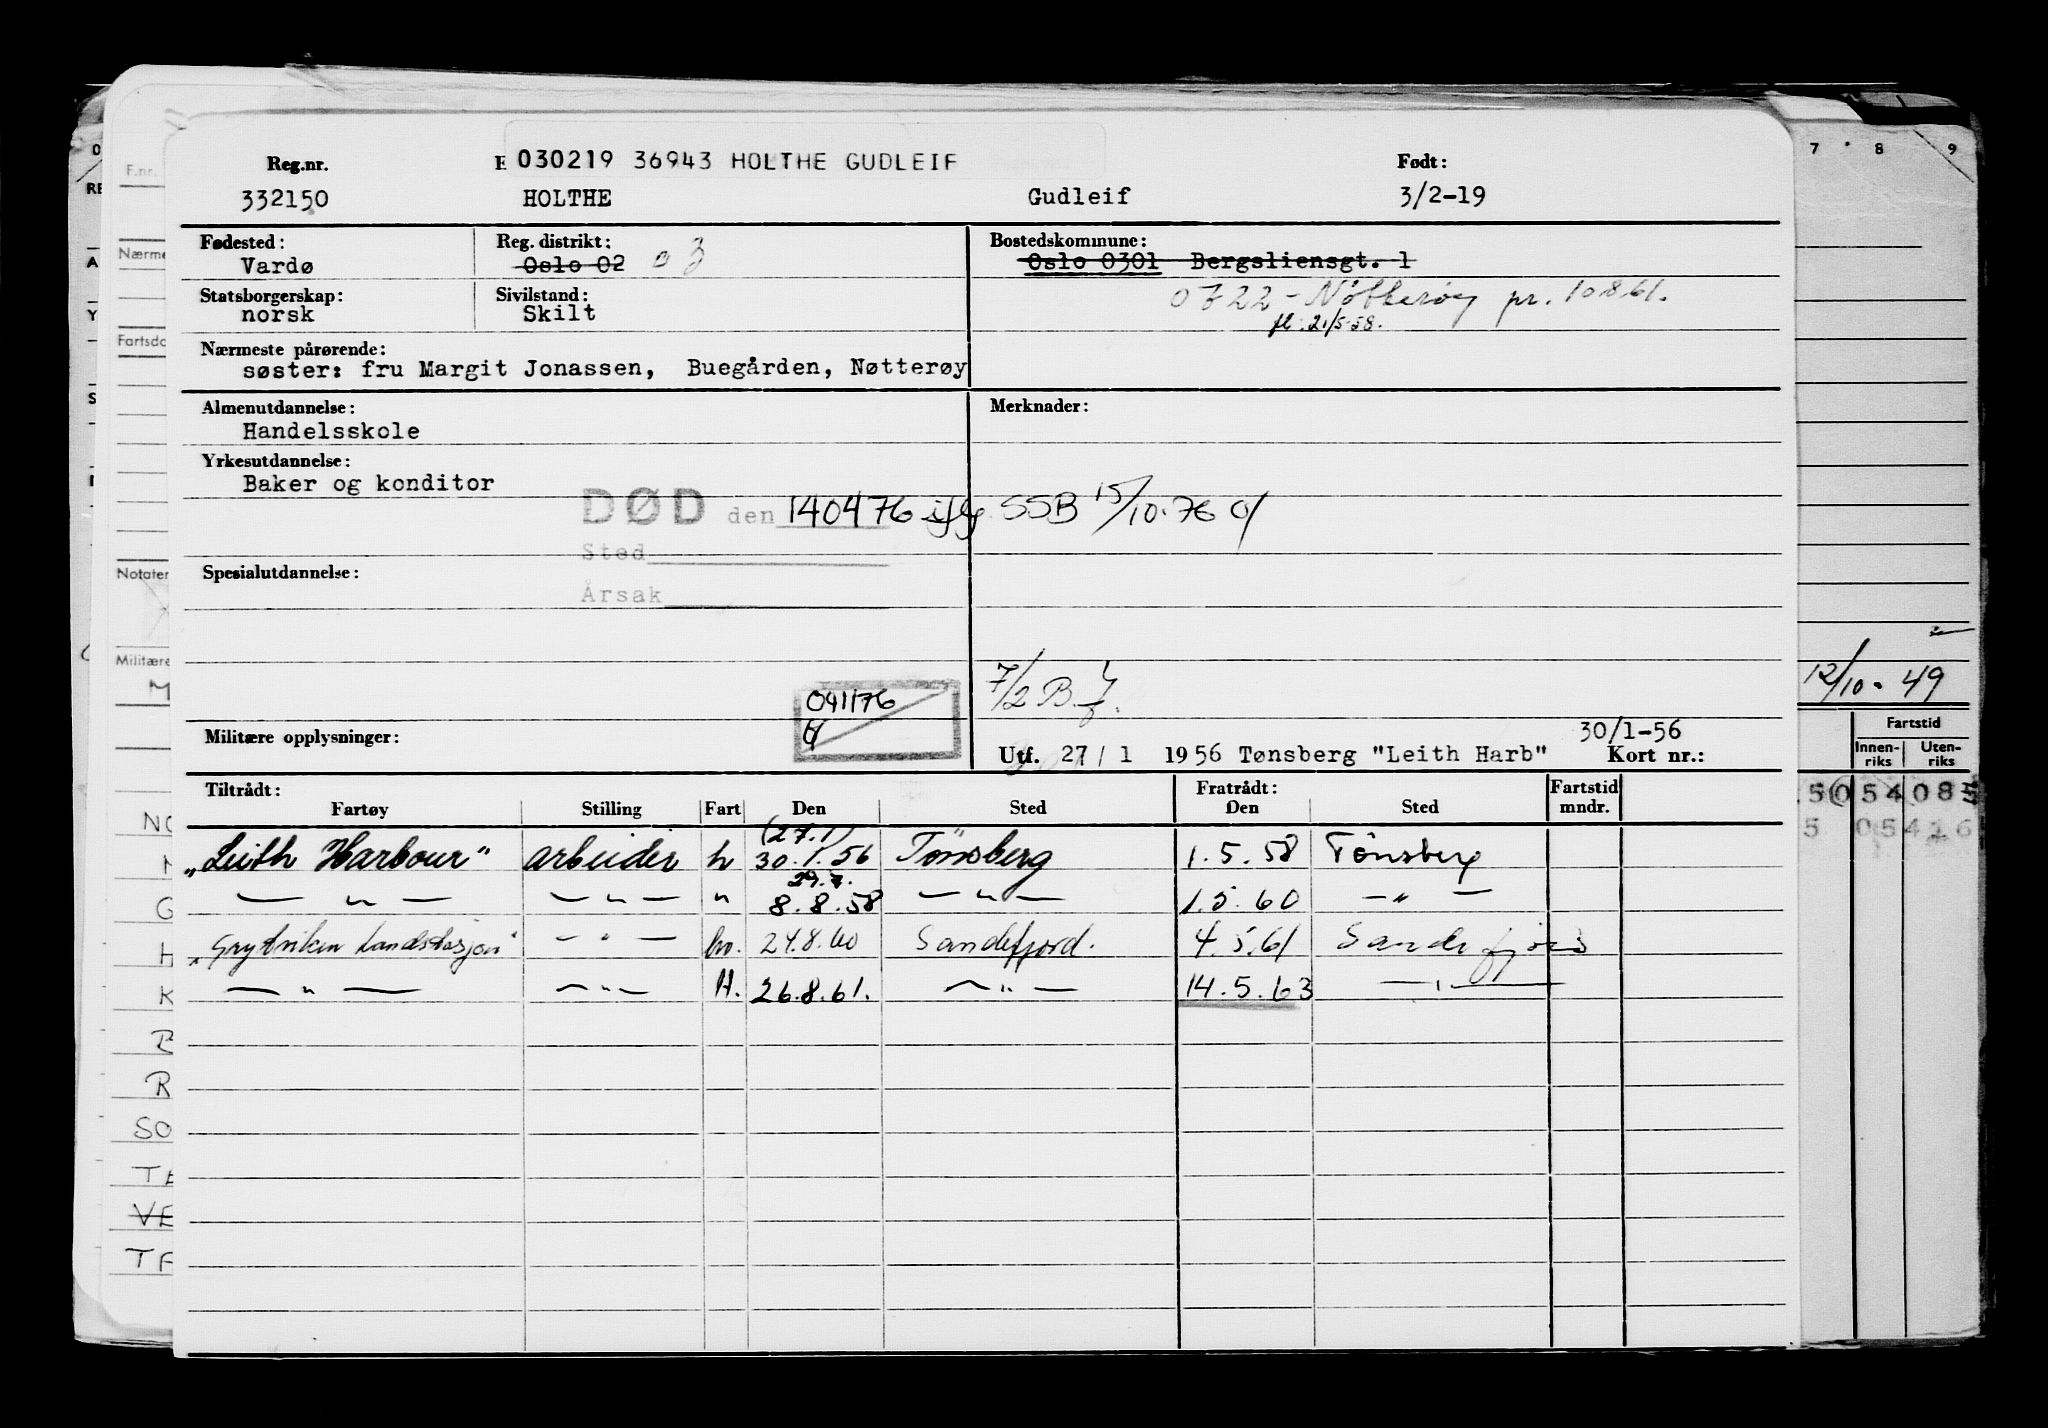 Reg.nr. 030219 36943 HOLTHE GUDLEIF Født:
332150 HOLTHE Gudleif 3/2-19
Fødested: Reg. distrikt: Bostedskommune:
Vardø Oslo 02 03 Oslo 0301 Bergsliensgt. 1
Statsborgerskap: Sivilstand: 0722 - Nøtterøy pr. 10.8.61.
norsk Skilt fl. 21/5-58.
Nærmeste pårørende:
søster: fru Margit Jonassen, Buegården, Nøtterøy
Almenutdannelse: Merknader:
Handelsskole
Yrkesutdannelse:
Baker og konditor
DØD den 140476 iflg SSB 15/10.76
Sted
Spesialutdannelse:
Årsak
7/2 B
041176
Militære opplysninger: 30/1-56
Utf. 27/1 1956 Tønsberg "Leith Harb" Kort nr.:
Tiltrådt: Fratrådt: Fartstid
Fartøy Stilling Fart Den Sted Den Sted mndr.
(27.1)
"Leith Harbour" arbeider h 30.1.56 Tønsberg 1.5.58 Tønsberg
29.7.
— " — — " — " 8.8.58 — " — 1.5.60 — " —
"Grytviken Landstasjon" — " — hv. 24.8.60 Sandefjord. 4.5.61 Sandefjord
— " — — " — H. 26.8.61. — " — 14.5.63 — " —
F.nr.
Nærme
Fartsdo
Notater
Militære
NO
G
H
K
B
R
SO
TE
VE
TF
7 8 9
12/10-49
Fartstid
Innen- Uten-
riks riks